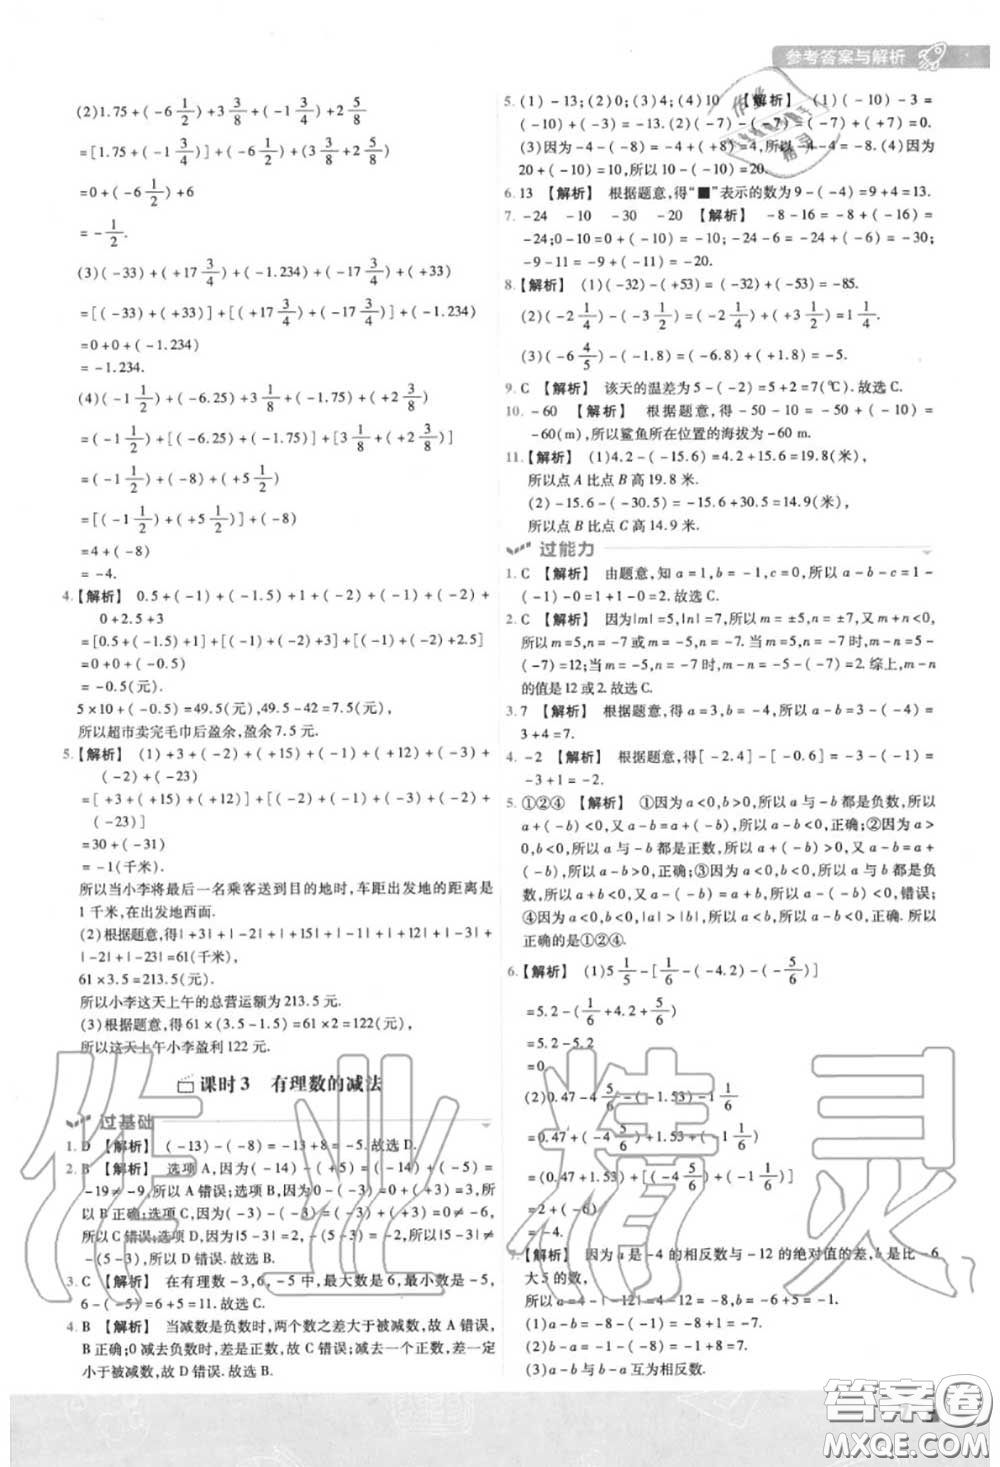 参考答案与解析
(2)1.75+(-6 1/2)+3 3/8+(-1 3/4)+(2 5/8)
=[1.75+(-1 3/4)]+(-6 1/2)+(3 3/8+2 5/8)
=0+(-6 1/2)+6
=-1/2.
(3)(-33)+(+17 3/4)+(-1.234)+(-17 3/4)+(+33)
=[(-33)+(+33)]+[(+17 3/4)+(-17 3/4)]+(-1.234)
=0+0+(-1.234)
=-1.234.
(4)(-1 1/2)+(-6.25)+3 1/8+(-1.75)+2 3/8
=(-1 1/2)+[(-6.25)+(-1.75)]+[3 1/8+(+2 3/8)]
=(-1 1/2)+(-8)+(+5 1/2)
=[(-1 1/2)+(+5 1/2)]+(-8)
=4+(-8)
=-4.
4.【解析】 0.5+(-1)+(-1.5)+1+(-2)+(-1)+(-2)+
0+2.5+3
=[0.5+(-1.5)+1]+[(-1)+(-2)+3]+[(-1)+(-2)+2.5]
=0+0+(-0.5)
=-0.5(元).
5×10+(-0.5)=49.5(元),49.5-42=7.5(元),
所以超市卖完毛巾后盈余,盈余7.5元.
5.【解析】 (1)+3+(-2)+(+15)+(-1)+(+12)+(-3)+
(-2)+(-23)
=[+3+(+15)+(+12)]+[(-2)+(-1)+(-3)+(-2)+
(-23)]
=30+(-31)
=-1(千米).
所以当小李将最后一名乘客送到目的地时,车距出发地的距离是
1千米,在出发地西面.
(2)根据题意,得|+3|+|-2|+|+15|+|-1|+|+12|+|-3|+
|-2|+|-23|=61(千米),
61×3.5=213.5(元).
所以小李这天上午的总营运额为213.5元.
(3)根据题意,得61×(3.5-1.5)=61×2=122(元),
所以这天上午小李盈利122元.
课时3 有理数的减法
过基础
1. D 【解析】 (-13)-(-8)=-13+8=-5.故选D.
2. B 【解析】 选项A,因为(-14)-(+5)=(-14)+(-5)=
-19≠-9,所以A错误;选项B,因为0-(-3)=0+(+3)=3,所
以B正确;选项C,因为(-3)-(-3)=(-3)+(+3)=0≠-6,
所以C错误;选项D,因为|5-3|=2,-(5-3)=-2,所以|5-3|≠
-(5-3),所以D错误.故选B.
3. C 【解析】 在有理数-3,6,-5中,最大数是6,最小数是-5,
6-(-5)=6+5=11.故选C.
4. B 【解析】 当减数是负数时,两个数之差大于被减数,故A错误,
B正确;0减去负数时,差是正数,故C错误;减去正数时,差一定
小于被减数,故D错误.故选B.
5. (1)-13;(2)0;(3)4;(4)10 【解析】 (1)(-10)-3=
(-10)+(-3)=-13.(2)(-7)-(-7)=(-7)+(+7)=0.
(3)因为-4-(-8)=-4+(+8)=4,所以-4-4=-8.(4)因为
20+(-10)=10,所以10-(-10)=20.
6. 13 【解析】 根据题意,得“■”表示的数为9-(-4)=9+4=13.
7. -24 -10 -30 -20 【解析】 -8-16=-8+(-16)=
-24;0-10=0+(-10)=-10;-24-6=-24+(-6)=-30;
-9-11=-9+(-11)=-20.
8.【解析】 (1)(-32)-(+53)=(-32)+(-53)=-85.
(2)(-2 1/4)-(-3 1/2)=(-2 1/4)+(+3 1/2)=1 1/4.
(3)(-6 4/5)-(-1.8)=(-6.8)+(+1.8)=-5.
9. C 【解析】 该天的温差为5-(-2)=5+2=7(℃).故选C.
10. -60 【解析】 根据题意,得-50-10=-50+(-10)=
-60(m),所以鲨鱼所在位置的海拔为-60 m.
11.【解析】 (1)4.2-(-15.6)=4.2+15.6=19.8(米),
所以点A比点B高19.8米.
(2)-15.6-(-30.5)=-15.6+30.5=14.9(米),
所以点B比点C高14.9米.
过能力
1. C 【解析】 由题意,知a=1,b=-1,c=0,所以a-b-c=1-
(-1)-0=1+1-0=2.故选C.
2. C 【解析】 因为|m|=5,|n|=7,所以m=±5,n=±7,又m+n<0,
所以m=5,n=-7或m=-5,n=-7.当m=5,n=-7时,m-n=5-
(-7)=12;当m=-5,n=-7时,m-n=-5-(-7)=2.综上,m-n
的值是12或2.故选C.
3. 7 【解析】 根据题意,得a=3,b=-4,所以a-b=3-(-4)=
3+4=7.
4. -2 【解析】 根据题意,得[-2.4]-[-0.6]=-3-(-1)=
-3+1=-2.
5. ①②④ 【解析】 ①因为a<0,b>0,所以a与-b都是负数,所以
a+(-b)<0,又a-b=a+(-b),所以a-b<0,正确;②因为a>
0,b<0,所以a与-b都是正数,所以a+(-b)>0,又a-b=a+
(-b),所以a-b>0,正确;③因为a<0,b<0,所以a与b都是负数,
所以a+b<0,又a-(-b)=a+b,所以a-(-b)<0,错误;
④因为a<0,b<0,|a|>|b|,所以a-b<0,正确.所以
正确的是①②④.
6.【解析】 (1)5 1/5-[1/6-(-4.2)-(-5/6)]
=5.2-(1/6+4.2+5/6)
=5.2-5.2
=0.
(2)0.47-4 5/6-(-1.53)-1 1/6
=0.47+(-4 5/6)+(+1.53)+(-1 1/6)
=(0.47+1.53)+[(-4 5/6)+(-1 1/6)]
=2+(-6)
=-4.
7.【解析】 因为a是-4的相反数与-12的绝对值的差,b是比-6
大5的数,
所以a=4-|-12|=4-12=-8,b=-6+5=-1.
(1)a-b=-8-(-1)=-8+1=-7.
(2)b-a=-1-(-8)=-1+8=7.
(3)a-b与b-a互为相反数.
作业精灵
答案圈
MXQE.COM